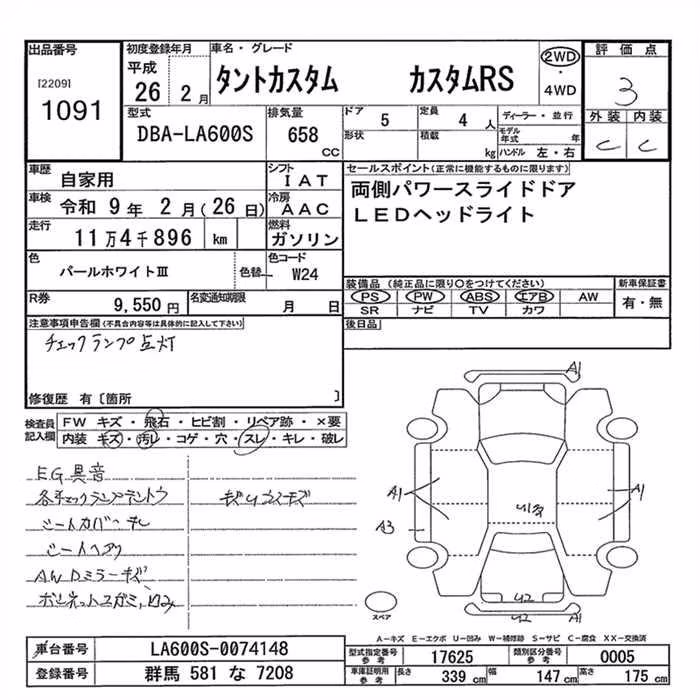 出品番号
[2209]
1091
初度登録年月
平成
26 2月
車名・グレード
タントカスタム カスタムRS
2WD
・
4WD
評価点
3
外装 内装
C C
型式
DBA-LA600S
排気量
658
CC
ドア
5
定員
4 人
形状
積載
kg
ディーラー・並行
モデル年式 年
ハンドル 左・右
車歴
自家用
シフト
IAT
車検
令和 9年 2月(26日)
冷房
AAC
走行
11万4千896 km
燃料
ガソリン
色
パールホワイトⅢ
色替
色コード
W24
R券
9,550円
名変通知期限
月 日
セールスポイント(正常に機能するものに限ります)
両側パワースライドドア
LEDヘッドライト
装備品(純正品に限り〇をつけてください)
新車保証書
PS PW ABS エアB AW
SR ナビ TV カワ
有・無
後日品
注意事項申告欄(不具合内容等は具体的に記入して下さい)
チェックランプ点灯
修復歴 有〔箇所 〕
検査員
記入欄
FW キズ・飛石・ヒビ割・リペア跡・×要
内装 キズ・汚レ・コゲ・穴・スレ・キレ・破レ
EG異音
各チェックランプテントウ
シートカバーキレ
シートヘタリ
ミラーキズ
ボンネットユガミ、凹み
A1
A1
A3
A1
A1
U2
U2
スペア
A-キズ E-エクボ U-凹み W-補修跡 S-サビ C-腐食 XX-交換済
車台番号
LA600S-0074148
登録番号
群馬 581 な 7208
型式指定番号
参考
17625
類別区分番号
参考
0005
車庫証明用
参考
長さ
339 cm
幅
147 cm
高さ
175 cm